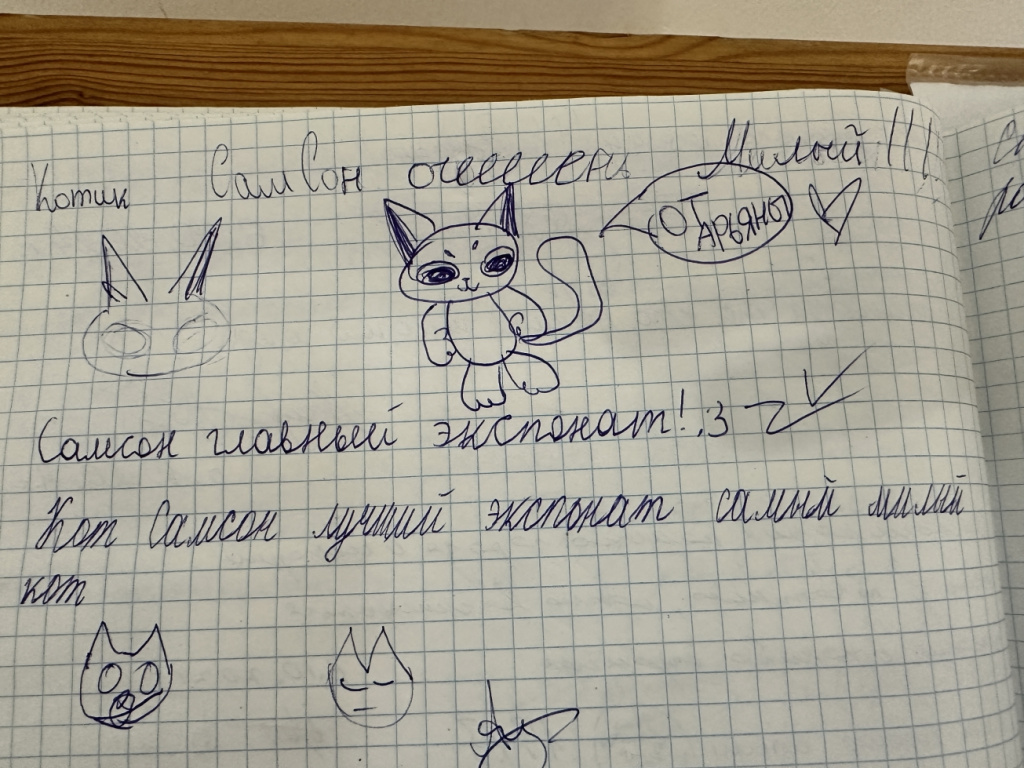 Котик СамСон очеееень Милый!!!
От Арьяны
Самсон главный экспонат! :3
Кот Самсон лучший экспонат самый милый
кот